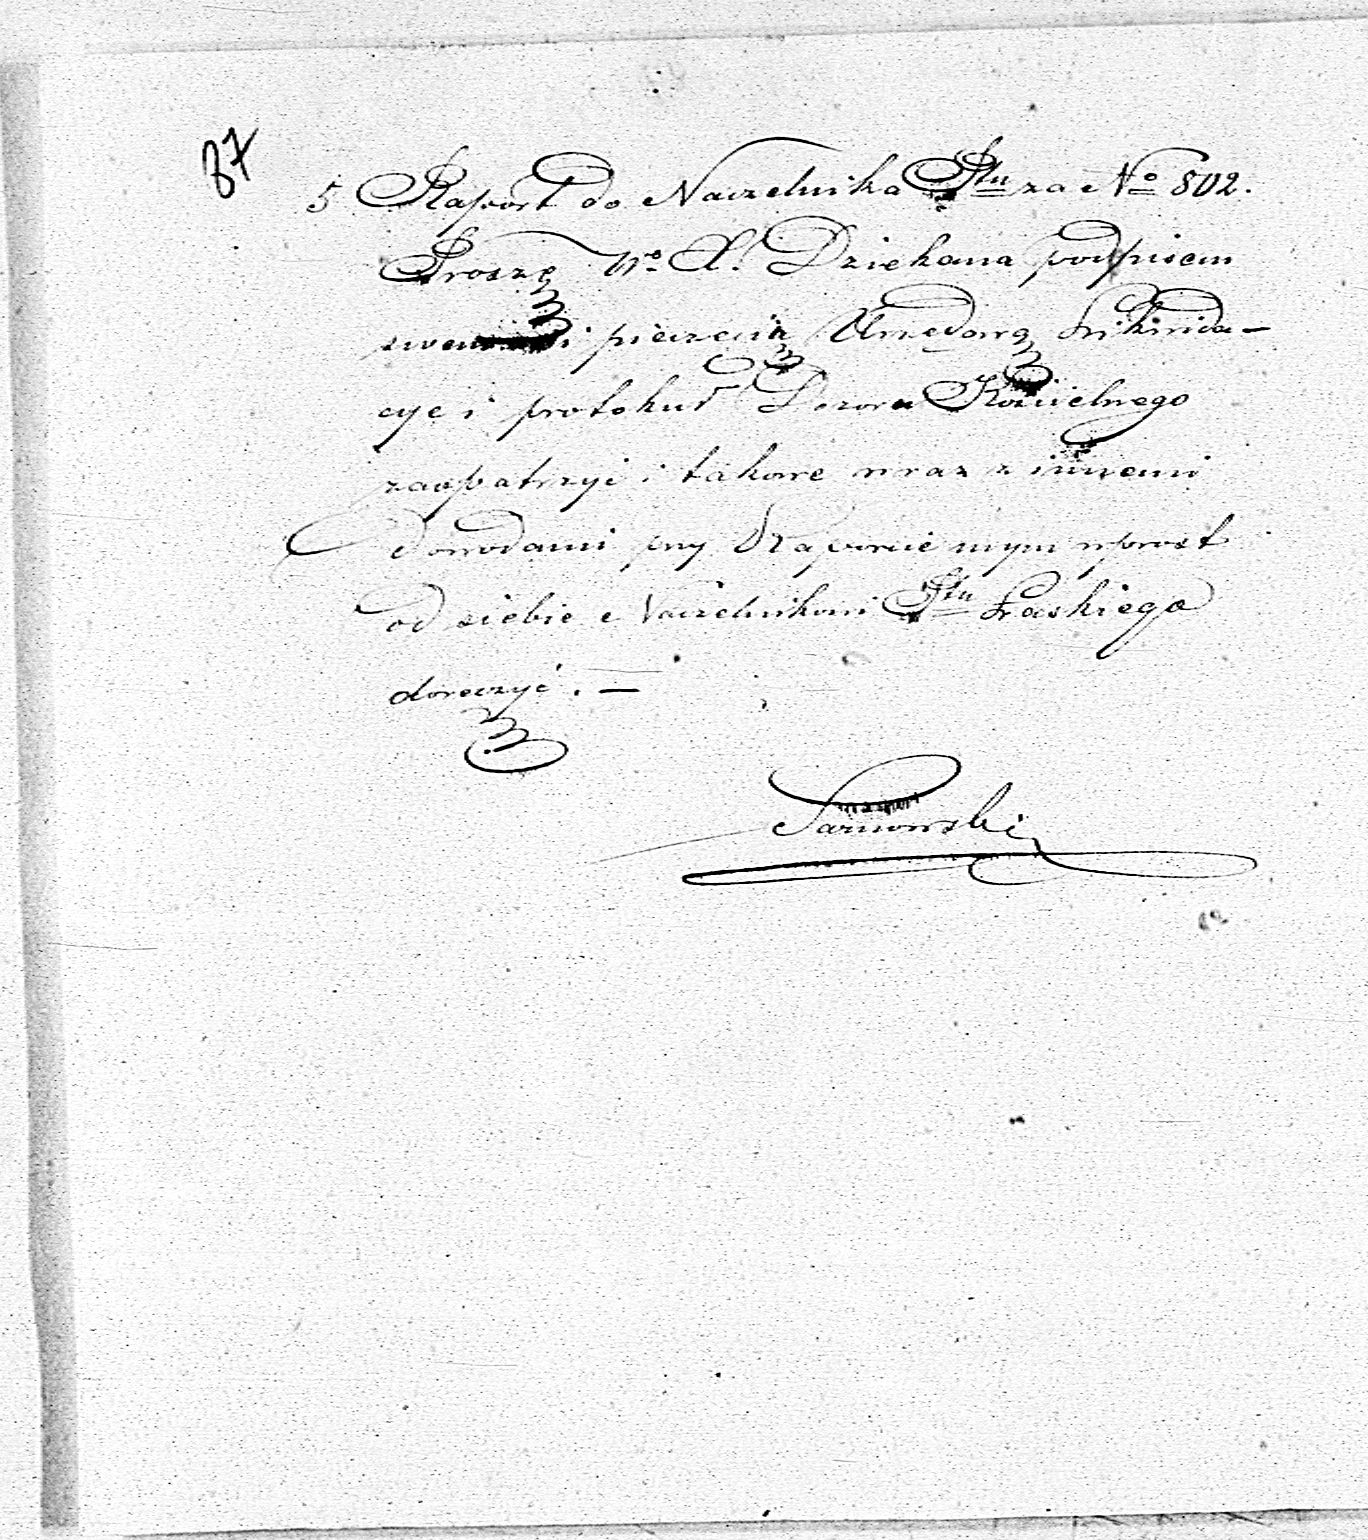 87
5 Raport do Naczelnika Ptu za No 802.
Proszę Wo X. Dziekana podpisem
swem i pieczęcią Urzędową Likwida-
cye i protokuł Dozoru Kościelnego
zaopatrzyć i takowe wraz z innemi
dowodami przy Raporcie mym wprost
od siebie Naczelnikowi Ptu Łaskiego
doręczyć. —